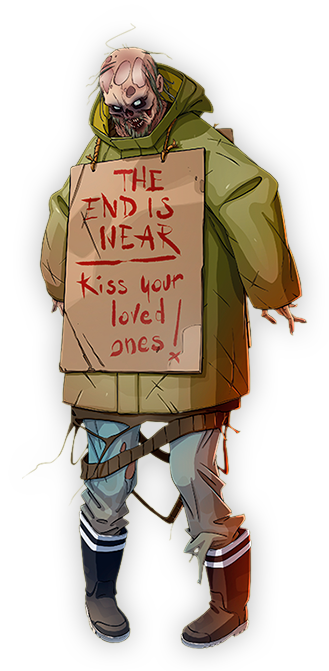 THE
END IS
NEAR
Kiss your
loved
ones!
x